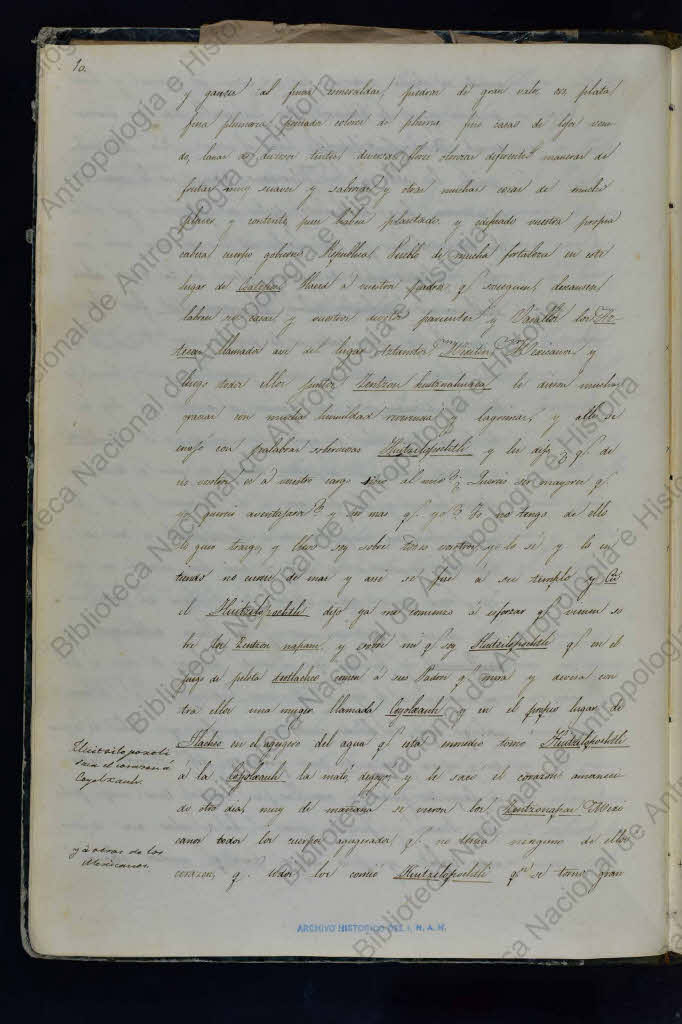 10.
y ganza al finas esmeraldas, piedras de gran valor oro plata
fina plumeria, preciada colores de pluma fino cacao de lejos veni
do, lanas de diversas tintas, diversas flores olorosas diferentes maneras de
frutas muy suaves y sabrosas y otras muchas cosas de mucho
placer, y contento, pues habeis plantado y edificado vuestra propia
cabeza cuerpo gobierno Republica, Pueblo de mucha fortaleza en este
lugar de Coatepec. Haced á vuestros padres qᵉ sosieguen, descansen
labren sus casas y vuestros deudos parientes y Vasallos los Az-
tecas llamados asi del lugar Aztlan Mexitin Mexicanos y
luego todos ellos juntos Zentzon huitznahuaca le dieron muchas
gracias con mucha humildad reverencia y lagrimas, y alli se
enojó con palabras soberviosas Huitzilopochtli y les dijo ¿ qᵉ de
cis vosotros es á vuestro cargo sino al mio? ¿ Quereis ser mayores qᵉ
yo? quereis aventajaros? y ser mas qᵉ yo? Yo no tengo de ello
lo guio traigo, y llevo soy sobre todos vosotros, yo lo sé, y lo en
tiendo no cureis de mas y asi se fué á su templo y Cú
el Huitzilopochtli dijo ya me comienzo á esforzar qᵉ vienen so
bre los Zentzon napam y sobre mi qᵉ soy Huitzilopochtli qᵉ en el
juego de pelota teotlachco comen á sus Padres qᵉ mira y divisa con
tra ellos una muger llamada Coyolxauh y en el propio lugar de
Tlachco en el agugero del agua qᵉ está enmedio tomó Huitzilopochtli
á la Coyolxauh la mató, degoyó, y le saco el corazon: amaneci
do otro dia, muy de mañana se vieron los Zentzonapas Mexi
canos todos los cuerpos agugerados qᵉ no tenia ninguno de ellos
corazon, qᵉ todos los comió Huitzilopochtli qⁿ se torno gran
Huitzilopoxtli
saca el corazon á
Coyolxauh.
y á otros de los
Mexicanos.
ARCHIVO HISTORICO DEL I. N. A. H.
Biblioteca Nacional de Antropología e Historia